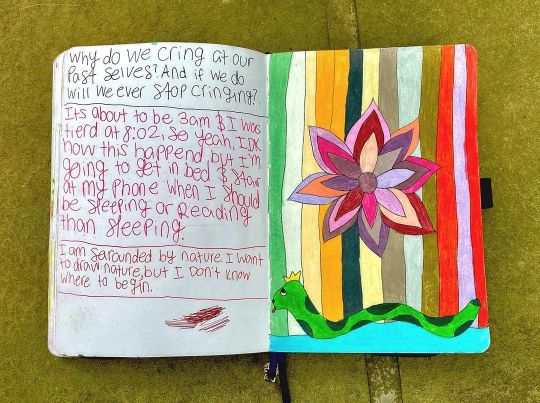 Why do we cring at our
Past selves? And if we do
will we ever stop cringing?
Its about to be 3am & I was
tierd at 8:02, so yeah, IDK
how this happend, but I'm
going to get in bed & stair
at my phone when I should
be sleeping or Reading
than sleeping.
I am serounded by nature. I want
to draw nature, but I don't know
where to begin.